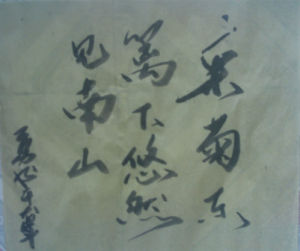 采菊东
篱下悠然
见南山